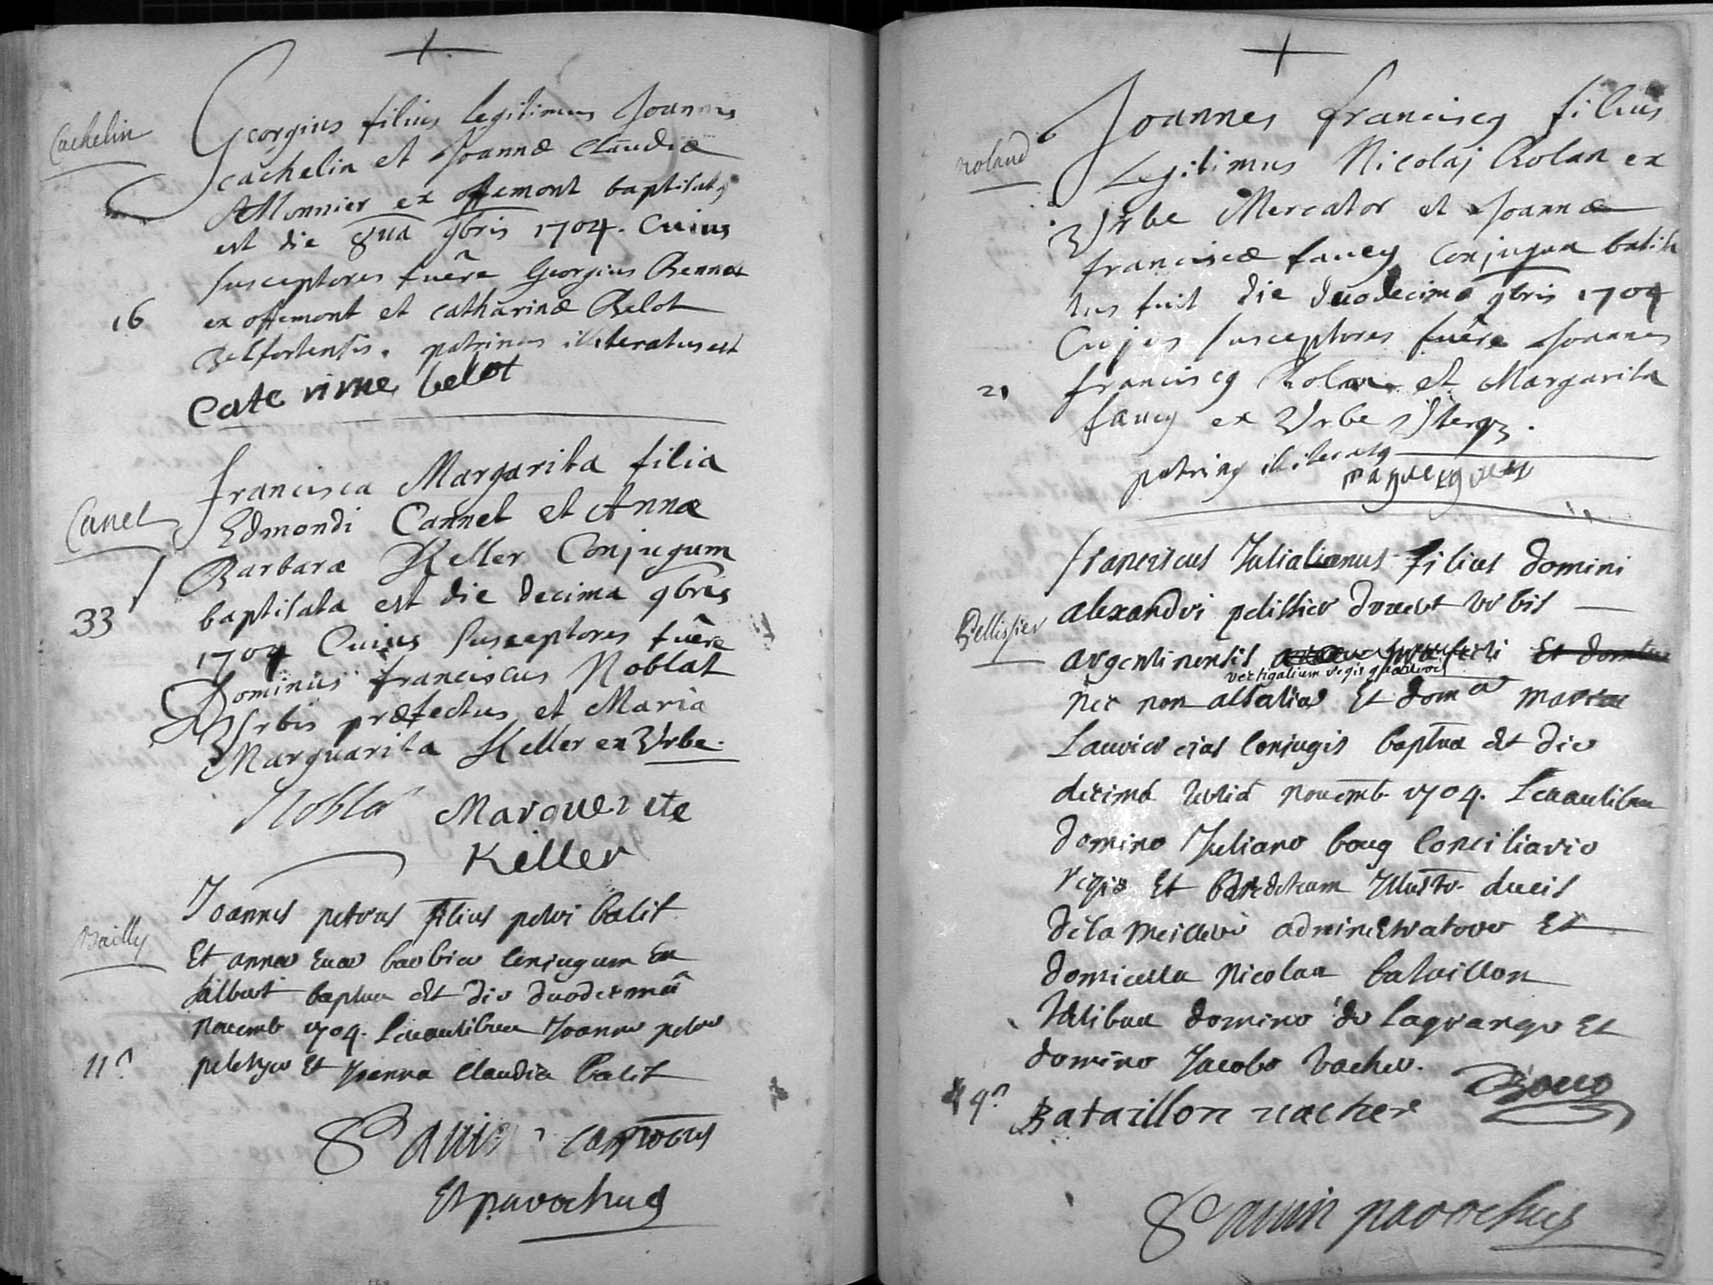 Cachelin
Georgius filius legitimus Joannis
cachelin et Joannæ Claudiæ
Monnier ex offemont baptisatus
est die 8va 9bris 1704. Cuius
susceptores fuêre Georgius Bennet
16
ex offemont et catharinæ Belot
Belfortensis. patrinus illiteratus est
Cate rine belot
Canet
francisca Margarita filia
Edmondi Cannet et Annæ
Barbaræ Keller Conjugum
33
baptisata est die decima 9bris
1704 Cuius susceptores fuêre
Dominus franciscus Noblat
Urbis præfectus et Maria
Marguarita Keller ex Urbe.
Noblat Marguerete
Keller
Bailly
Joannes petrus filius petri balit
Et anna Eua barbier Conjugum Ex
baptus est die duodecimâ
nouemb 1704. Leuantibus Joanne petro
11
Et Joanna Claudia balit
Et parochus
roland
Joannes franciscq filius
Legitimus Nicolaj Rolan ex
Urbe Mercator et Joannæ
franciscæ faucy Conjugum batisa
tus fuit die duodecima 9bris 1704
Cujus susceptores fuêre Joannes
21
franciscq Rolan et Margarita
faucy ex Urbe Uterq3.
patrinq illiteratq
Pellissier
franciscus Julialianus filius Domini
alexandri pelissier Urbis
argentinensis
vectigalium regis
nec non alsatiæ Et Domæ mariæ
eius Conjugis
decimâ nouemb 1704. Leuantibus
Domino Juliano boug Conciliario
regis Et Illustr. ducis
De la meilleri administratore Et
domicella Nicolaa bataillon
domino de lagrange Et
domino Jacobo vacher.
49
Bataillon vacher Boug
parochus